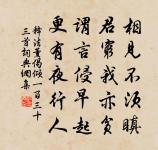 相見不須瞋
君窮我亦貧
謂言侵早起
更有夜行人
釋法薰偈傾一百三十
三首詞典網集